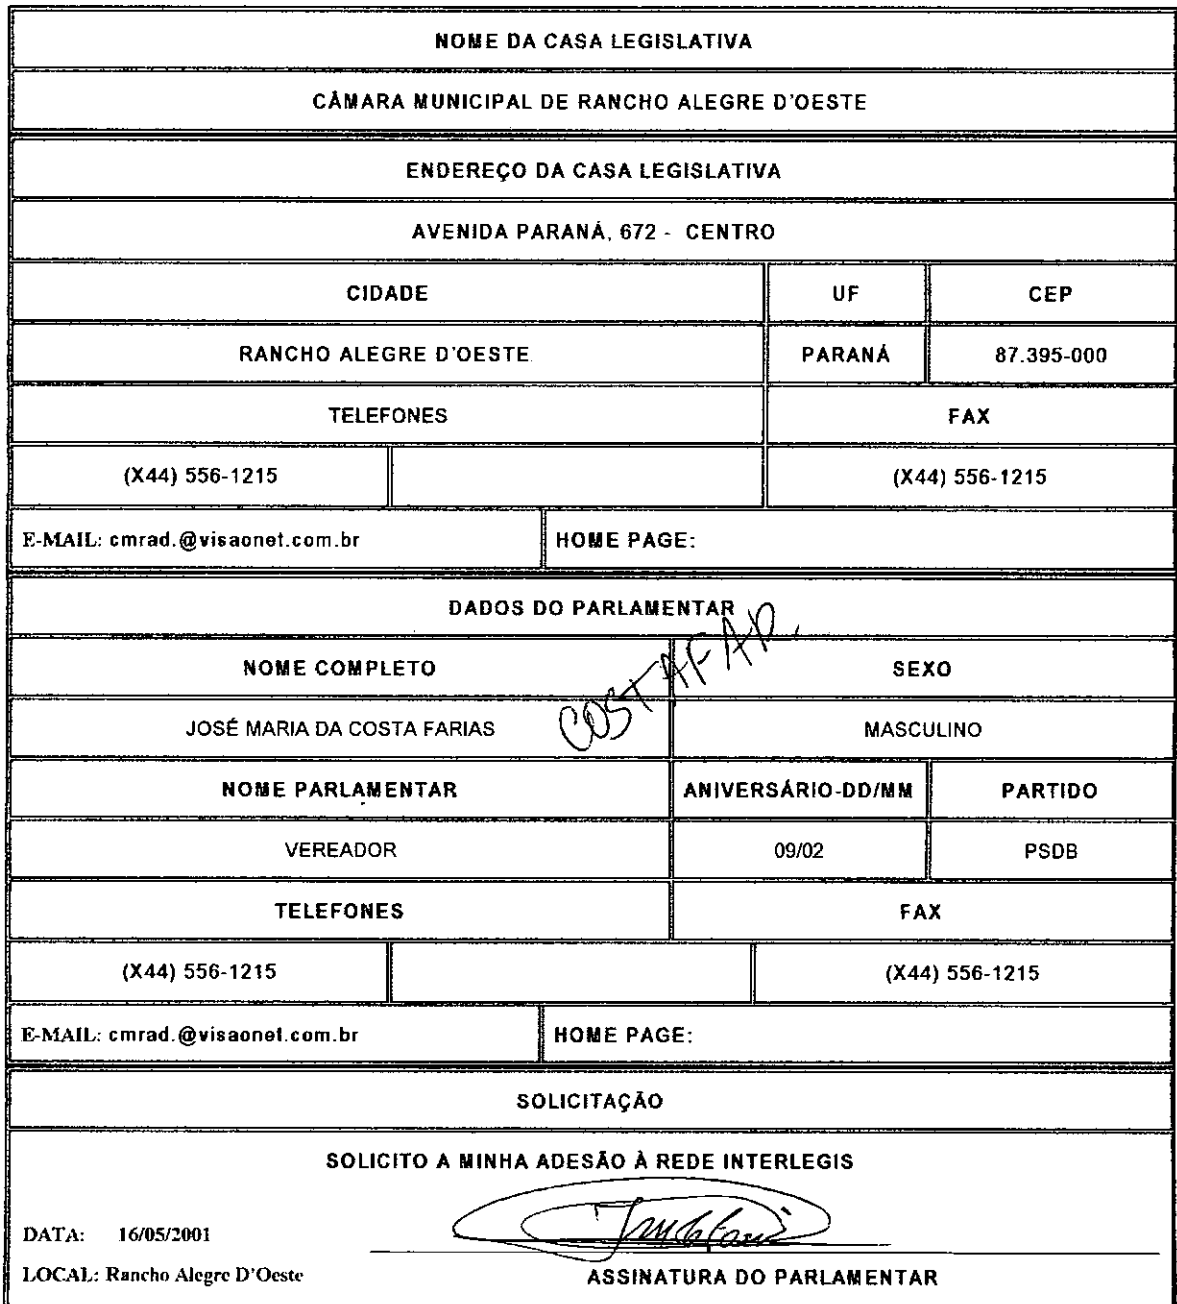 NOME DA CASA LEGISLATIVA
CÂMARA MUNICIPAL DE RANCHO ALEGRE D'OESTE
ENDEREÇO DA CASA LEGISLATIVA
AVENIDA PARANÁ, 672 - CENTRO
CIDADE UF CEP
RANCHO ALEGRE D'OESTE PARANÁ 87.395-000
TELEFONES FAX
(X44) 556-1215 (X44) 556-1215
E-MAIL: cmrad.@visaonet.com.br HOME PAGE:
DADOS DO PARLAMENTAR
COSTAFAR
NOME COMPLETO SEXO
JOSÉ MARIA DA COSTA FARIAS MASCULINO
NOME PARLAMENTAR ANIVERSÁRIO-DD/MM PARTIDO
VEREADOR 09/02 PSDB
TELEFONES FAX
(X44) 556-1215 (X44) 556-1215
E-MAIL: cmrad.@visaonet.com.br HOME PAGE:
SOLICITAÇÃO
SOLICITO A MINHA ADESÃO À REDE INTERLEGIS
DATA: 16/05/2001
LOCAL: Rancho Alegre D'Oeste ASSINATURA DO PARLAMENTAR